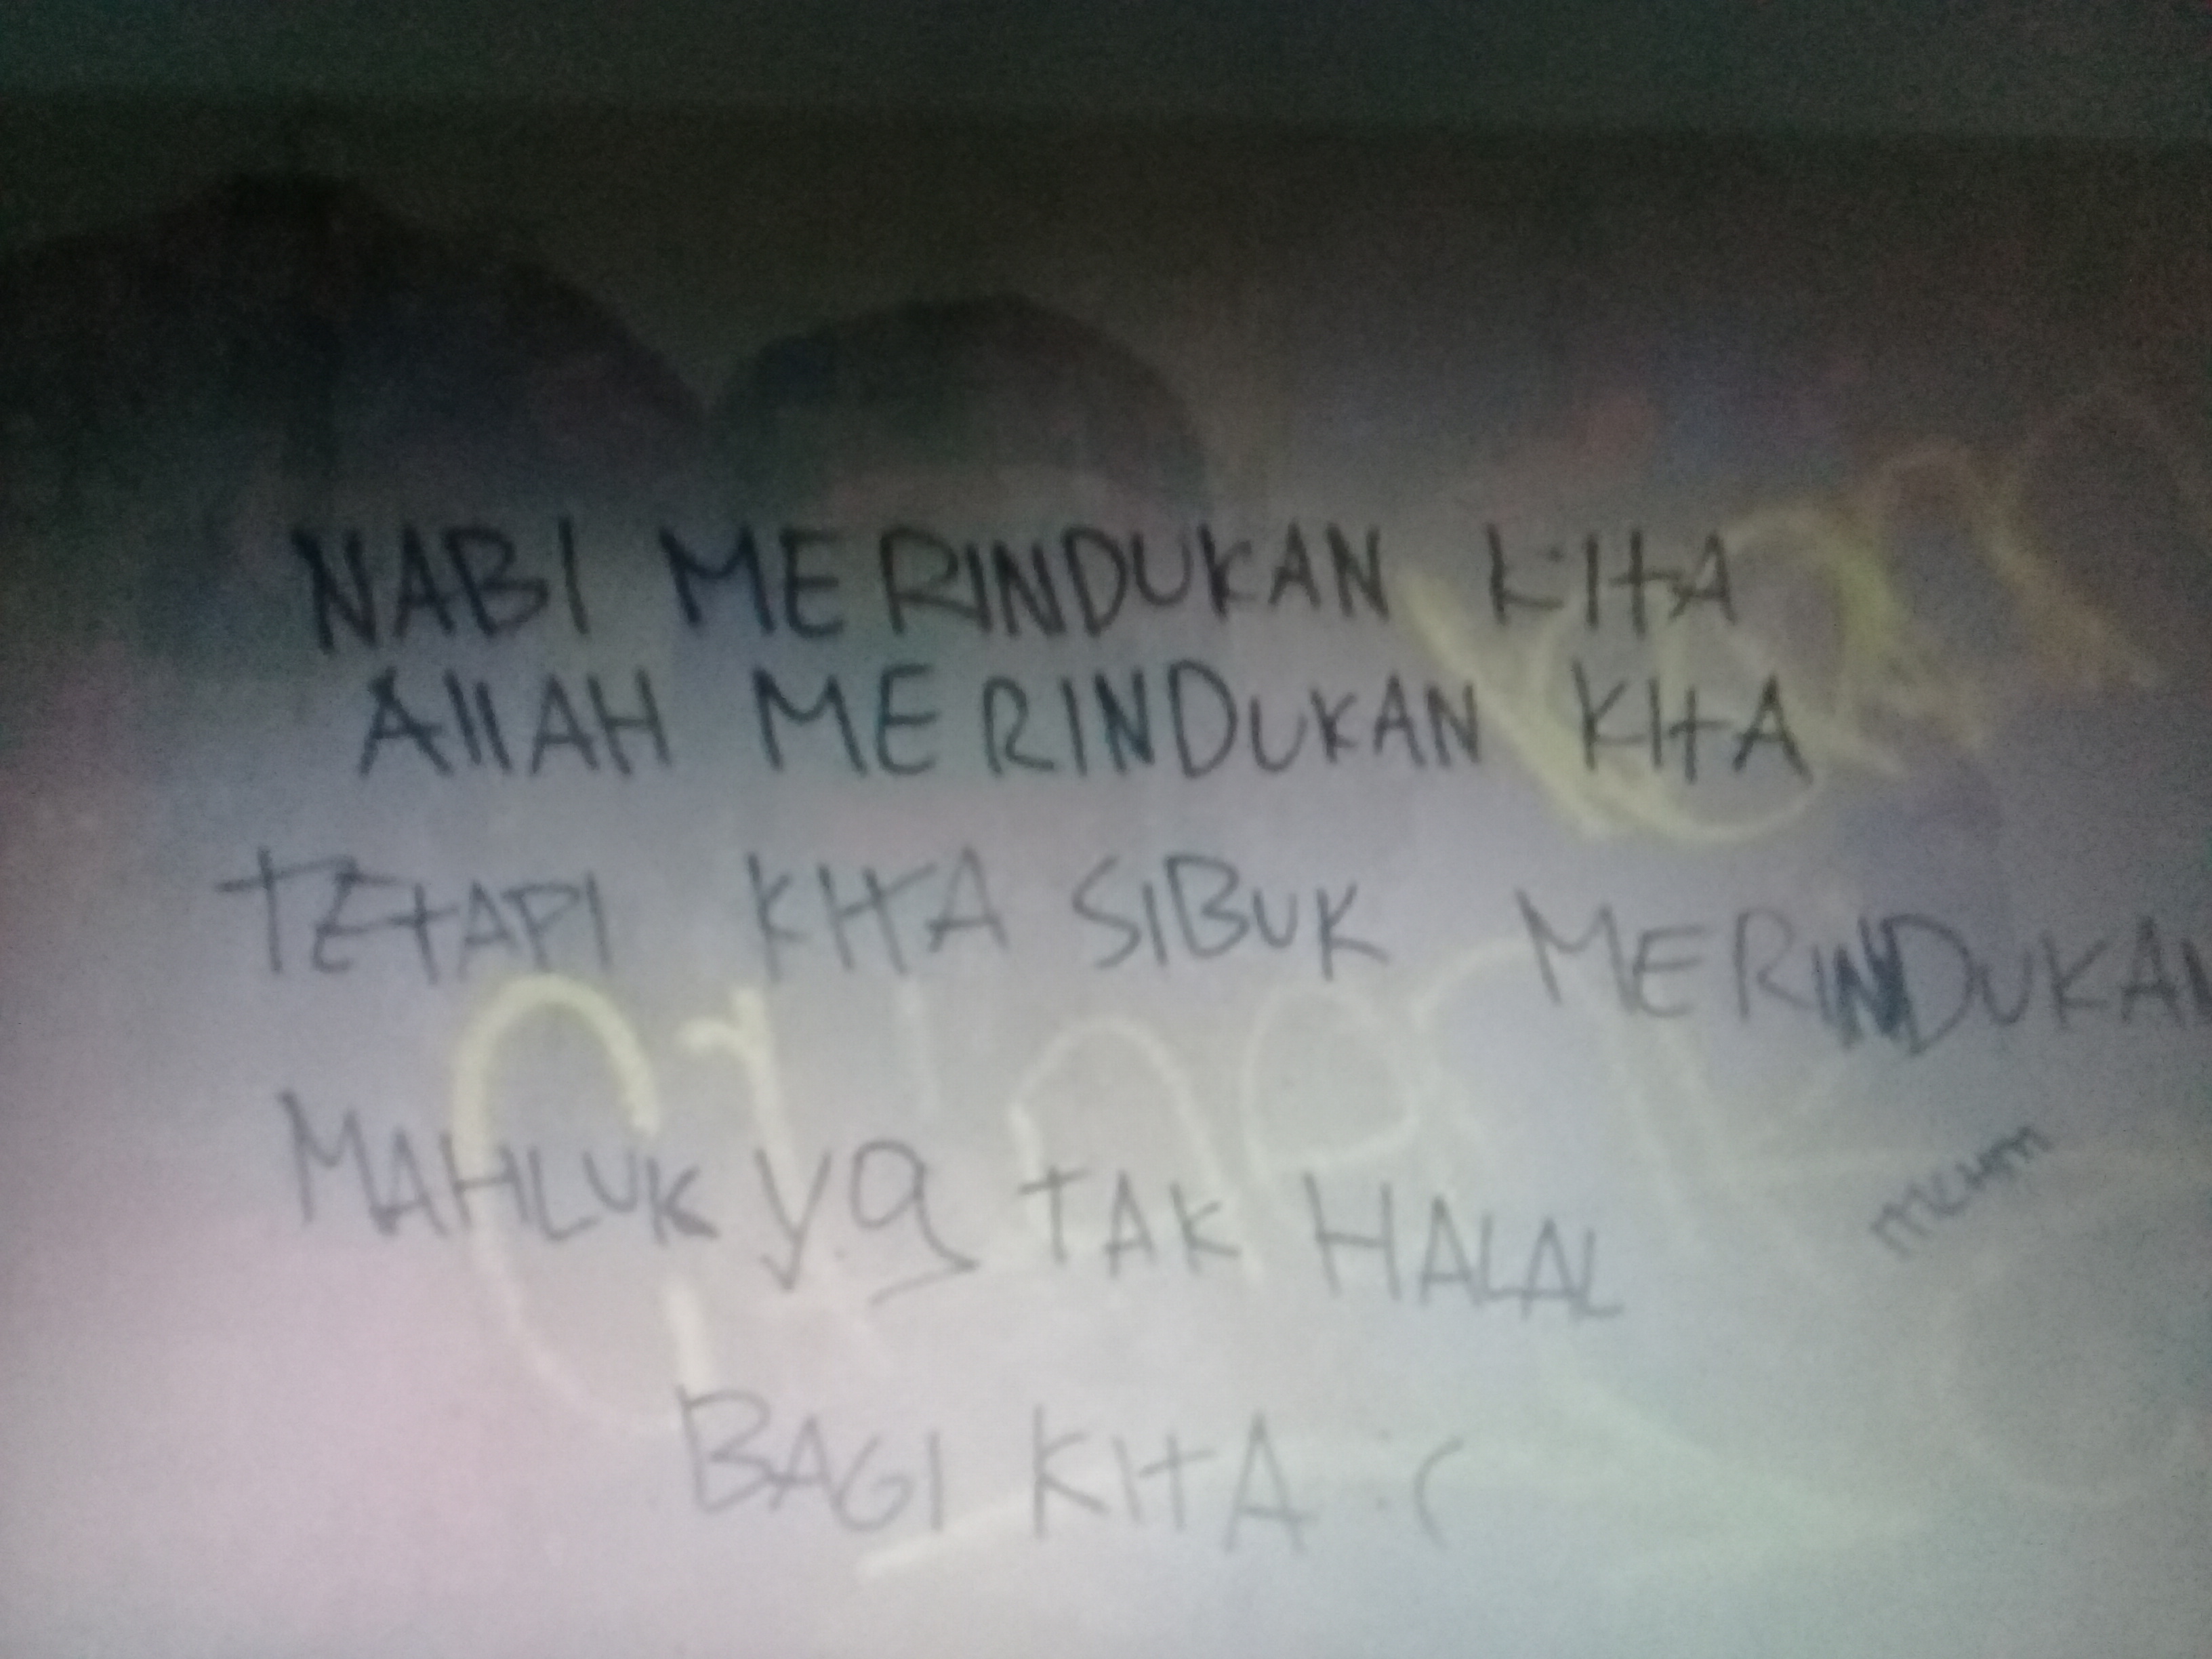 NABI MERINDUKAN KITA
AllAH MERINDUKAN KITA
TETAPI KITA SIBUK MERINDUKAN
MAHLUK y.g TAK HALAL
BAGI KITA :(